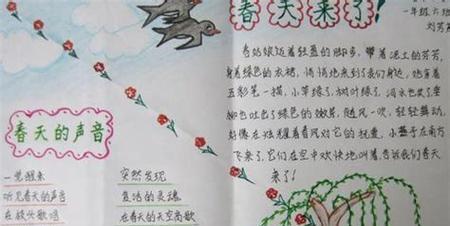 春天来了!
一年级六班
春姑娘迈着轻盈的脚步,带着泥土的芬芳,
身着绿色的衣裙,悄悄地来到了我们身边,她拿着
五彩笔一描,小草绿了,树叶绿了,河水也
吐出了绿色的嫩芽,随风一吹,轻轻舞动,
好像在抚摸着春风对它的抚爱,小燕子在南方
飞来了,它们在空中欢快地叫着,告诉我们春天
来了!
春天的声音
一觉醒来
听见春天的声音
在放头歌唱
突然发现
复活的灵魂
在春天的天空高歌